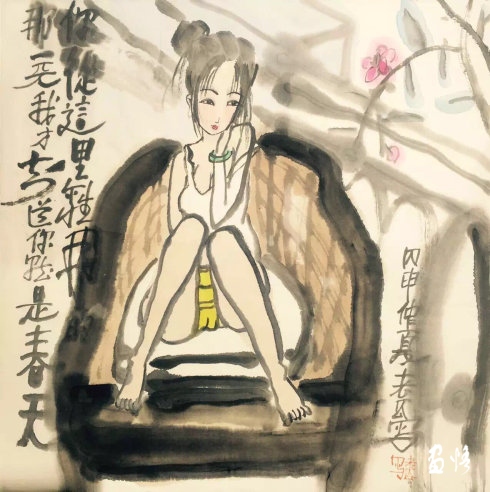 你從這里離開的
那一天我才知道你就是春天
丙申仲夏老